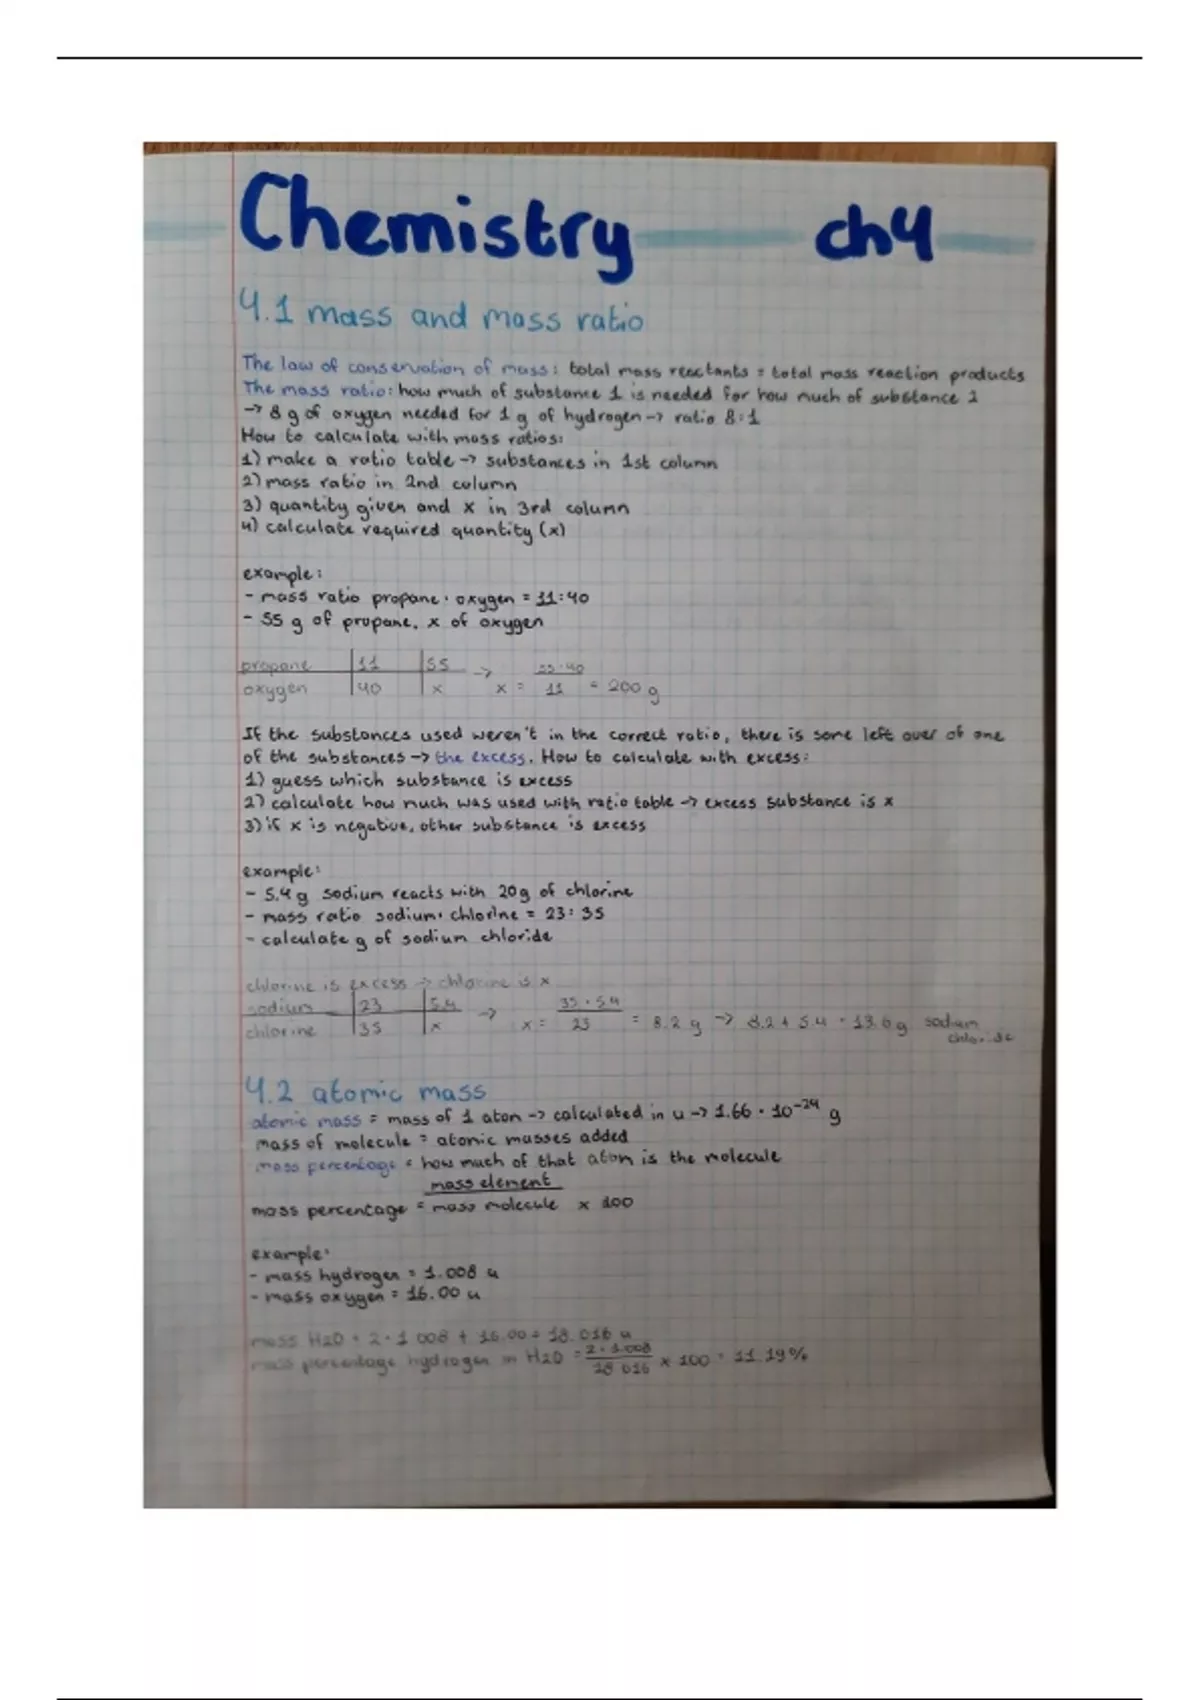 Chemistry ch4
4.1 mass and mass ratio
The law of conservation of mass: total mass reactants = total mass reaction products
The mass ratio: how much of substance 1 is needed for how much of substance 2
-> 8 g of oxygen needed for 1 g of hydrogen -> ratio 8:1
How to calculate with mass ratios:
1) make a ratio table -> substances in 1st column
2) mass ratio in 2nd column
3) quantity given and x in 3rd column
4) calculate required quantity (x)
example:
- mass ratio propane : oxygen = 11:40
- 55 g of propane, x of oxygen
propane | 11 | 55 -> 55 · 40
oxygen | 40 | x x = 11 = 200 g
If the substances used weren't in the correct ratio, there is some left over of one
of the substances -> the excess. How to calculate with excess:
1) guess which substance is excess
2) calculate how much was used with ratio table -> excess substance is x
3) if x is negative, other substance is excess
example:
- 5.4 g sodium reacts with 20g of chlorine
- mass ratio sodium : chlorine = 23:35
- calculate g of sodium chloride
chlorine is excess -> chlorine is x
sodium | 23 | 5.4 -> 35 · 5.4
chlorine | 35 | x x = 23 = 8.2 g -> 8.2 + 5.4 = 13.6 g sodium
chloride
4.2 atomic mass
atomic mass = mass of 1 atom -> calculated in u -> 1.66 · 10⁻²⁴ g
mass of molecule = atomic masses added
mass percentage = how much of that atom is the molecule
mass element
mass percentage = mass molecule x 100
example:
- mass hydrogen = 1.008 u
- mass oxygen = 16.00 u
mass H2O = 2 · 1.008 + 16.00 = 18.016 u
mass percentage hydrogen in H2O = 2 · 1.008
18.016 x 100 = 11.19%